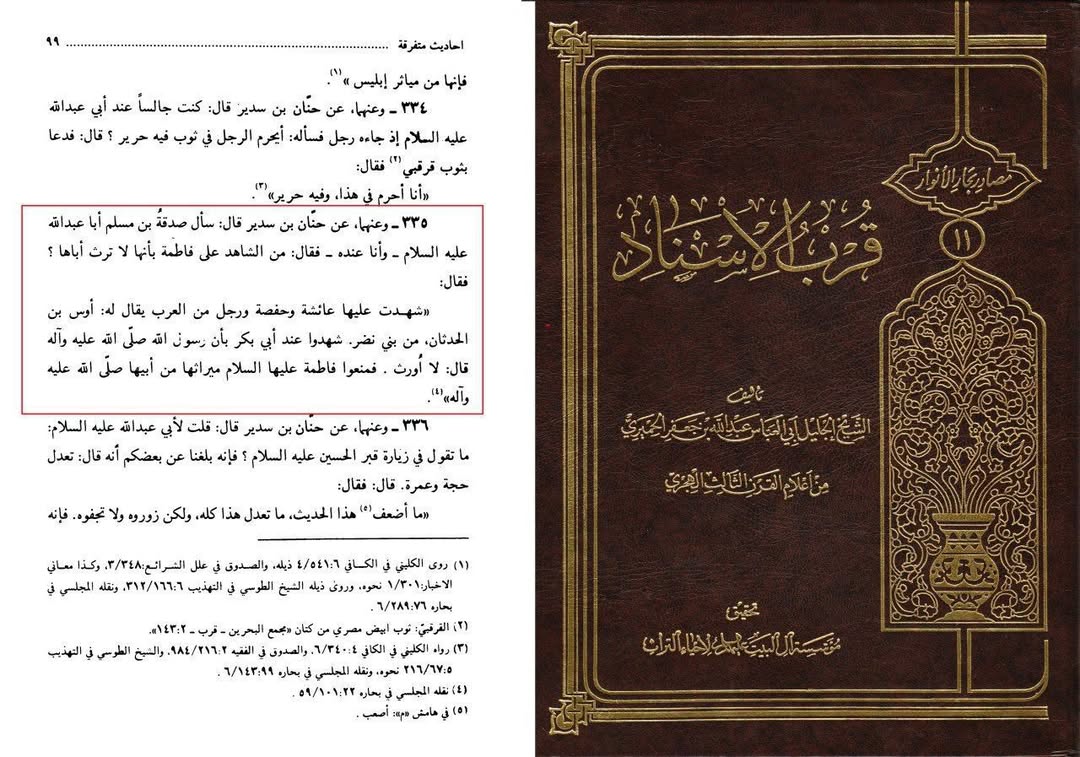 احاديث متفرقة ................................................ ٩٩
فإنها من مياثر إبليس»(١).
٣٣٤ ـ وعنهما، عن حنّان بن سدير قال: كنت جالساً عند أبي عبدالله
عليه السلام إذ جاءه رجل فسأله: أيحرم الرجل في ثوب فيه حرير ؟ قال: فدعا
بثوب قرقبي(٢) فقال:
«أنا أحرم في هذا، وفيه حرير»(٣).
٣٣٥ ـ وعنهما، عن حنّان بن سدير قال: سأل صدقةُ بن مسلم أبا عبدالله
عليه السلام ـ وأنا عنده ـ فقال: من الشاهد على فاطمة بأنها لا ترث أباها ؟
فقال:
«شهدت عليها عائشة وحفصة ورجل من العرب يقال له: أوس بن
الحدثان، من بني نضر. شهدوا عند أبي بكر بأن رسول الله صلّى الله عليه وآله
قال: لا اُورث . فمنعوا فاطمة عليها السلام ميراثها من أبيها صلّى الله عليه
وآله»(٤).
٣٣٦ ـ وعنهما، عن حنّان بن سدير قال: قلت لأبي عبدالله عليه السلام:
ما تقول في زيارة قبر الحسين عليه السلام ؟ فإنه بلغنا عن بعضكم أنه قال: تعدل
حجة وعمرة. قال: فقال:
«ما أضعف(٥) هذا الحديث، ما تعدل هذا كله، ولكن زوروه ولا تجفوه. فإنه
(١) روى الكليني في الكافي ٦:٥٤١/٤ ذيله، والصدوق في علل الشرائع:٣/٣٤٨، وكذا معاني
الاخبار:١/٣٠١ نحوه، وروى ذيله الشيخ الطوسي في التهذيب ٦:١٦٦/٣١٢، ونقله المجلسي في
بحاره ٧٦:٢٨٩/٦ .
(٢) القرقبيّ: ثوب ابيض مصري من كتان «مجمع البحرين ـ قرب ـ ٢:١٤٣».
(٣) رواه الكليني في الكافي ٤:٣٤٠/٦، والصدوق في الفقيه ٢:٢١٦/٩٨٤، والشيخ الطوسي في التهذيب
٥:٦٧/٢١٦ نحوه، ونقله المجلسي في بحاره ٩٩:١٤٣/٦ .
(٤) نقله المجلسي في بحاره ٢٢:١٠١/٥٩ .
(٥) في هامش «م»: أصعب .
مصادر بحار الأنوار
١١
قُربُ الإسناد
تأليف
الشيخ الجليل أبي العباس عبدالله بن جعفر الحميري
من أعلام القرن الثالث الهجري
تحقيق
مؤسسة آل البيت عليهم السلام لإحياء التراث